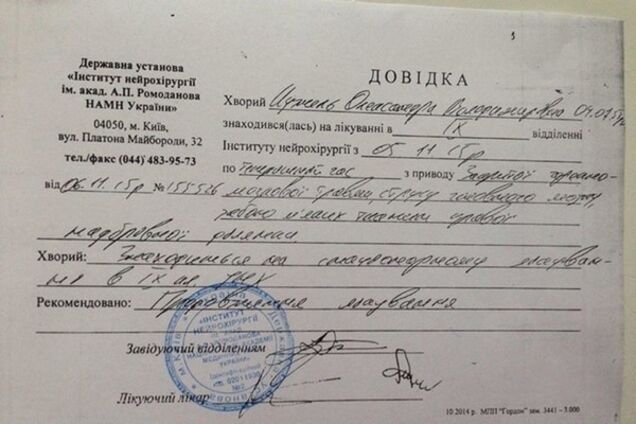 Державна установа
«Інститут нейрохірургії
ім. акад. А.П. Ромоданова
НАМН України»
04050, м. Київ,
вул. Платона Майбороди, 32
тел./факс (044) 483-95-73
від 06.11.15р № 155526
ДОВІДКА
Хворий Олександра Володимирівна
знаходився(лась) на лікуванні в IX відділенні
Інституту нейрохірургії з 05 11 15р
по теперішній час з приводу Закритої черепно-
мозкової травми, струсу головного мозку,
забою м'яких тканин правої
надбрівної ділянки.
Хворий: Знаходиться на стаціонарному лікуван-
ня в IX
Рекомендовано: Продовження лікування
Завідуючий відділенням
Лікуючий лікар
«ІНСТИТУТ
НЕЙРОХІРУРГІЇ
УКРАЇНИ»
10.2014 р. МПП "Гордон" зам. 3441 – 3.000